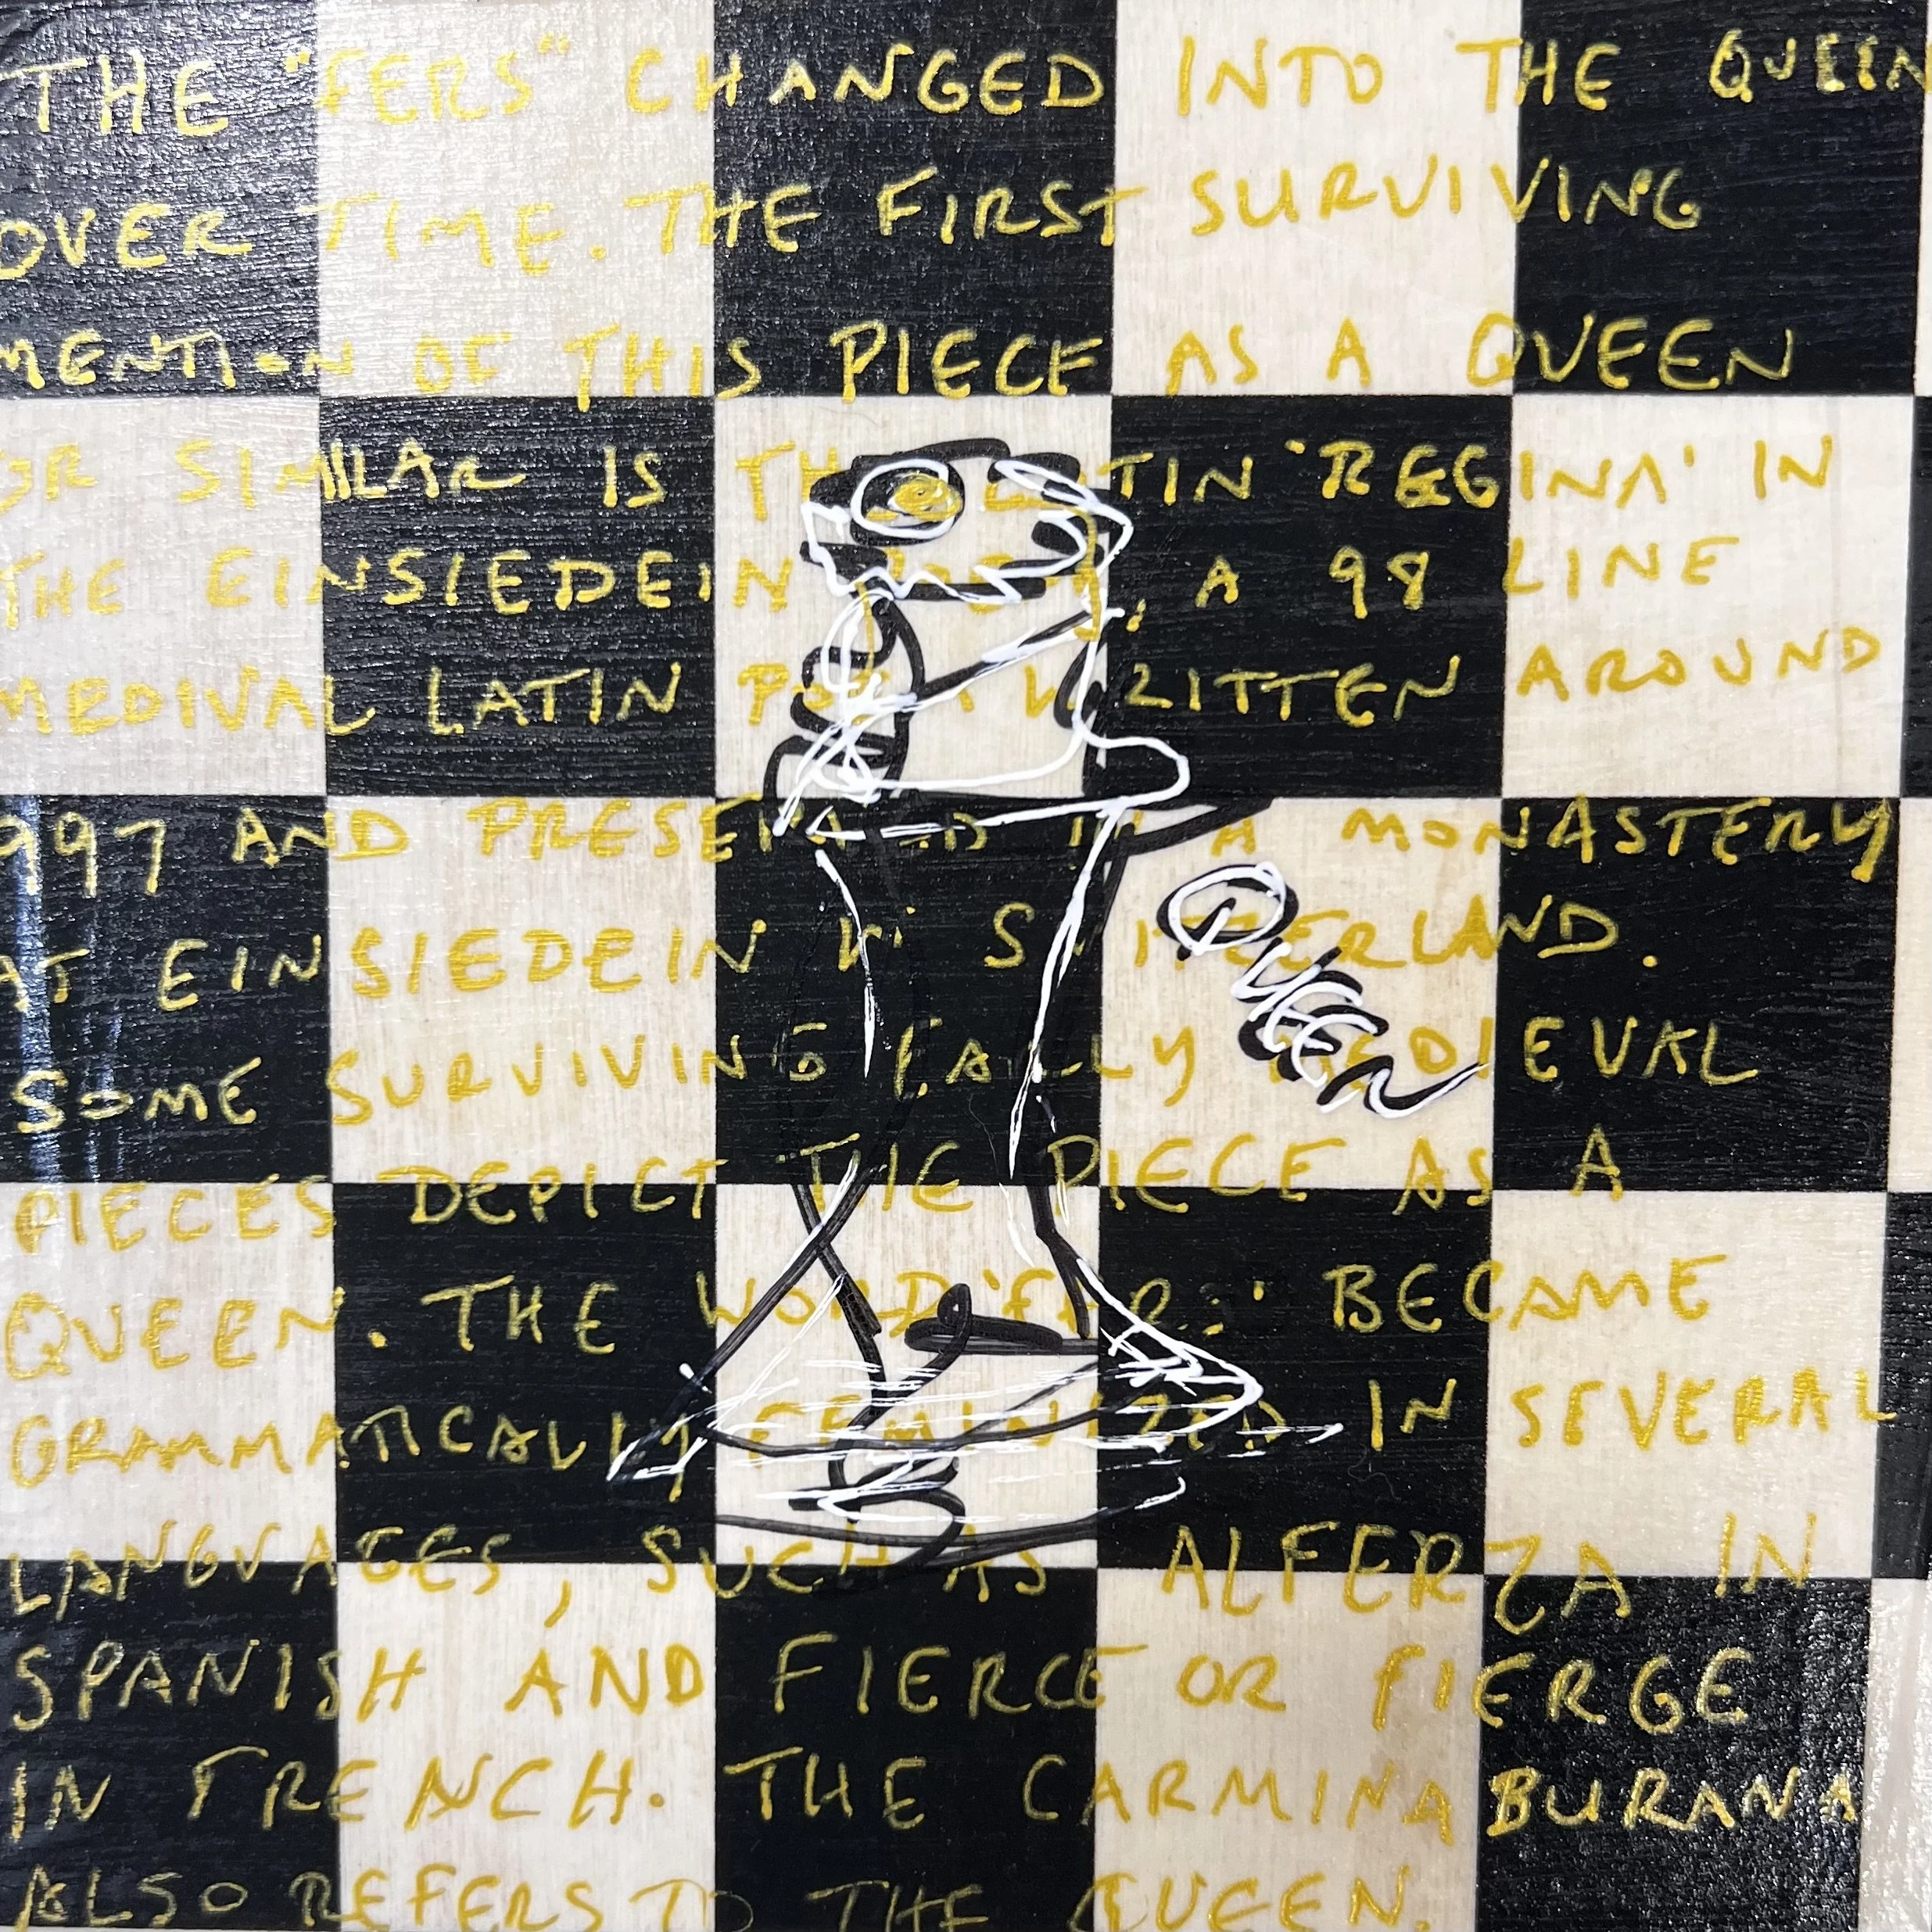 THE "FERS" CHANGED INTO THE QUEEN
OVER TIME. THE FIRST SURVIVING
MENTION OF THIS PIECE AS A QUEEN
OR SIMILAR IS THE LATIN 'REGINA' IN
THE EINSIEDEIN , A 98 LINE
MEDIVAL LATIN POEM WRITTEN AROUND
997 AND PRESERVED IN A MONASTERY
AT EINSIEDEIN IN SWITZERLAND.
SOME SURVIVING EARLY MEDIEVAL
PIECES DEPICT THE PIECE AS A
QUEEN. THE WORD 'FERS' BECAME
GRAMMATICALLY FEMINIZED IN SEVERAL
LANGUAGES, SUCH AS ALFERZA IN
SPANISH AND FIERCE OR FIERGE
IN FRENCH. THE CARMINA BURANA
ALSO REFERS TO THE QUEEN.
QUEEN